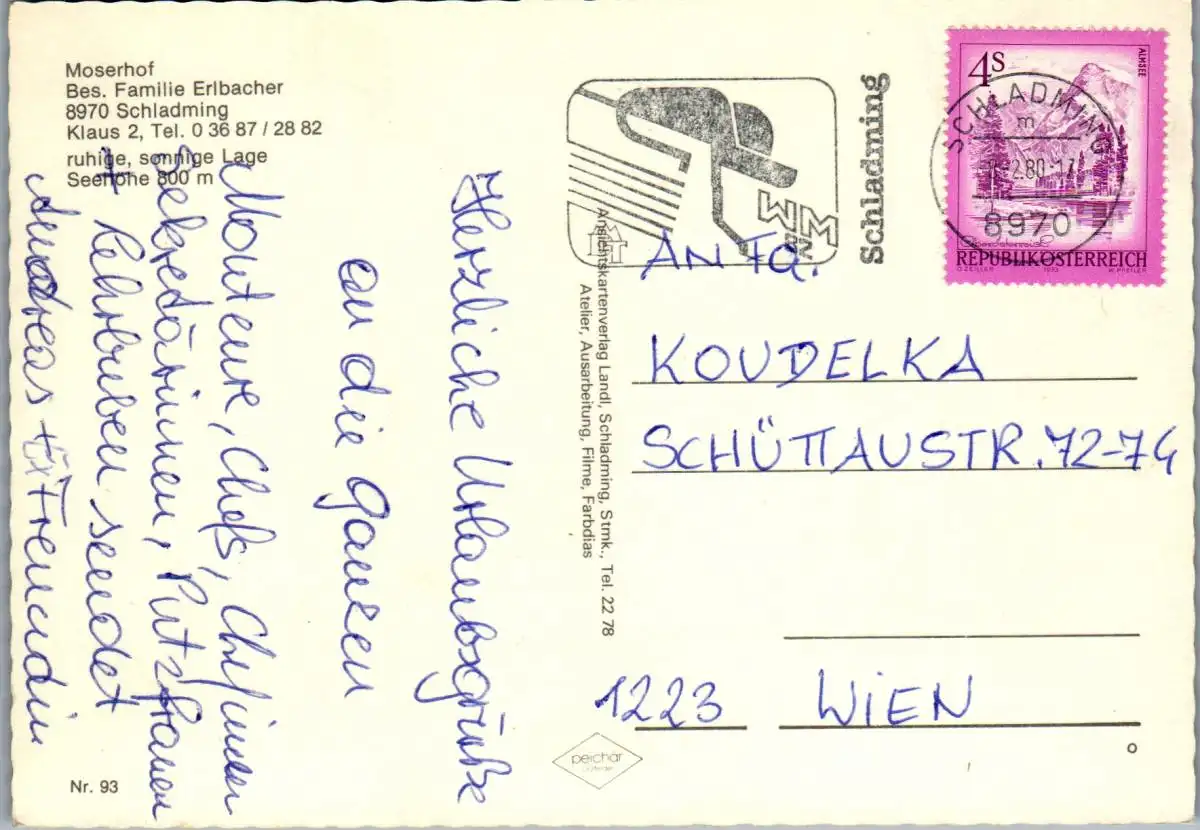 Moserhof
Bes. Familie Erlbacher
8970 Schladming
Klaus 2, Tel. 0 36 87 / 28 82
ruhige, sonnige Lage
Seehöhe 800 m
Herzliche Urlaubsgrüße
an die ganzen
Monteure, Chefs, Chefinnen
Sekretärinnen, Putzfrauen
+ Lehrbuben sendet
Andreas + Freundin
Nr. 93
Ansichtskartenverlag Landl, Schladming, Stmk., Tel. 22 78
Atelier, Ausarbeitung, Filme, Farbdias
peichär
WM
Schladming
4S
ALMSEE
SCHLADMING
m
2.80-17
8970
REPUBLIK ÖSTERREICH
O. ZEILLER
1973
W. PFEILER
AN FA.
KOUDELKA
SCHÜTTAUSTR. 72-74
1223 WIEN